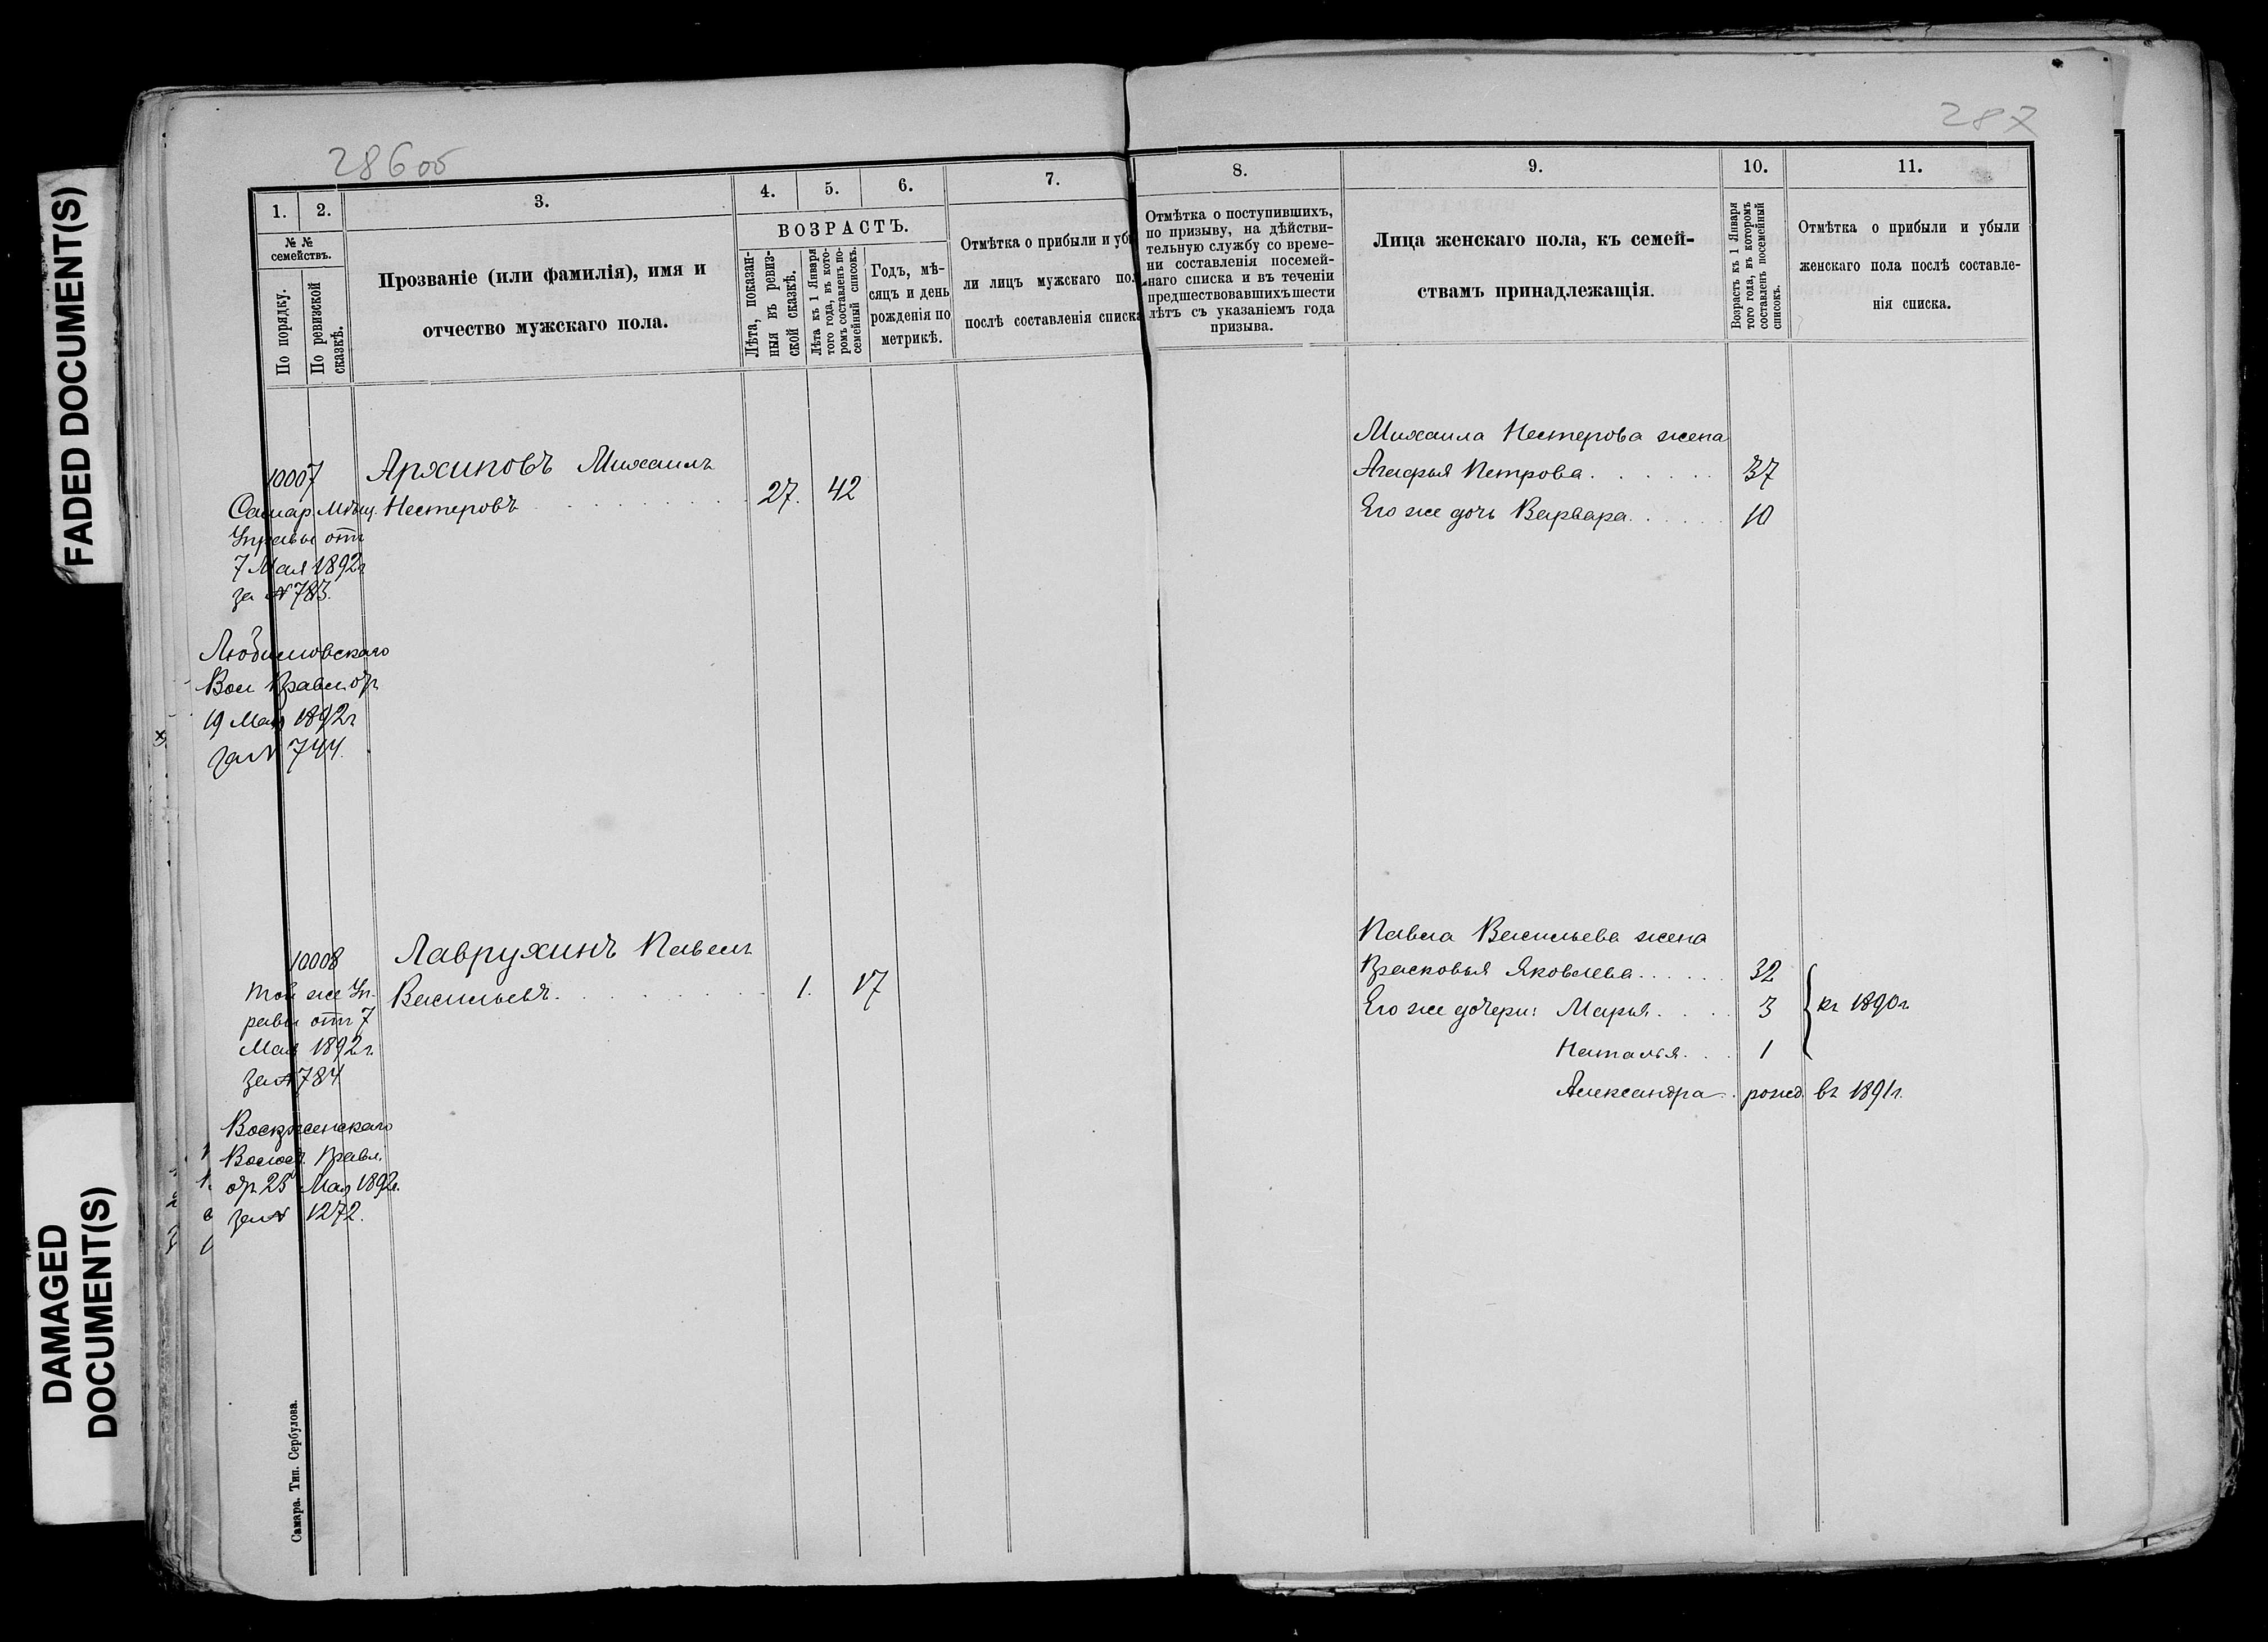 FADED DOCUMENT(S)
DAMAGED
DOCUMENT(S)
286об
1.
2.
3.
4.
5.
6.
7.
№ №
семействъ.
По порядку.
По ревизской
сказкѣ.
Прозваніе (или фамилія), имя и
отчество мужскаго пола.
ВОЗРАСТЪ.
Лѣта, показан-
ныя въ ревиз-
ской сказкѣ.
Лѣта къ 1 Января
того года, въ кото-
ромъ составленъ по-
семейный списокъ.
Годъ, мѣ-
сяцъ и день
рожденія по
метрикѣ.
Отмѣтка о прибыли и убы
ли лицъ мужскаго пол
послѣ составленія списка
10007
Архиповъ Михаилъ
Самар. Мѣщ. Нестеровъ 27. 42
Управы отъ
7 Мая 1892г
за № 783.
Любимовскаго
Вол Правл. об
19 Мая 1892г
за № 744.
10008
Лаврухинъ Павелъ
Васильевъ. 1. 17
той же Уп-
равы отъ 7
Мая 1892г.
за № 784
Воскресенскаго
Волост. Правл.
об 25 Мая 1892г.
за № 1272.
Самара. Тип. Сербулова.
287
8.
9.
10.
11.
Отмѣтка о поступившихъ,
по призыву, на дѣйстви-
тельную службу со време-
ни составленія посемей-
наго списка и въ теченіи
предшествовавшихъ шести
лѣтъ съ указаніемъ года
призыва.
Лица женскаго пола, къ семей-
ствамъ принадлежащія.
Возрастъ къ 1 Января
того года, въ которомъ
составленъ посемейный
списокъ.
Отмѣтка о прибыли и убыли
женскаго пола послѣ составле-
нія списка.
Михаила Нестерова жена
Агафья Петрова. 37
Его же дочь Варвара. 10
Павла Васильева жена
Прасковья Яковлева. 32
Его же дочери: Марья. 3 къ 1890г.
Наталья. 1
Александра. рожд. въ 1891г.